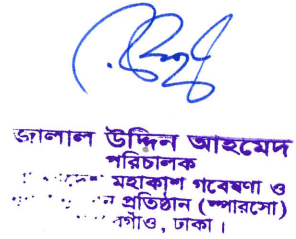 জালাল উদ্দিন আহমেদ
পরিচালক
মহাকাশ গবেষণা ও
প্রতিষ্ঠান (স্পারসো)
ঢাকা।